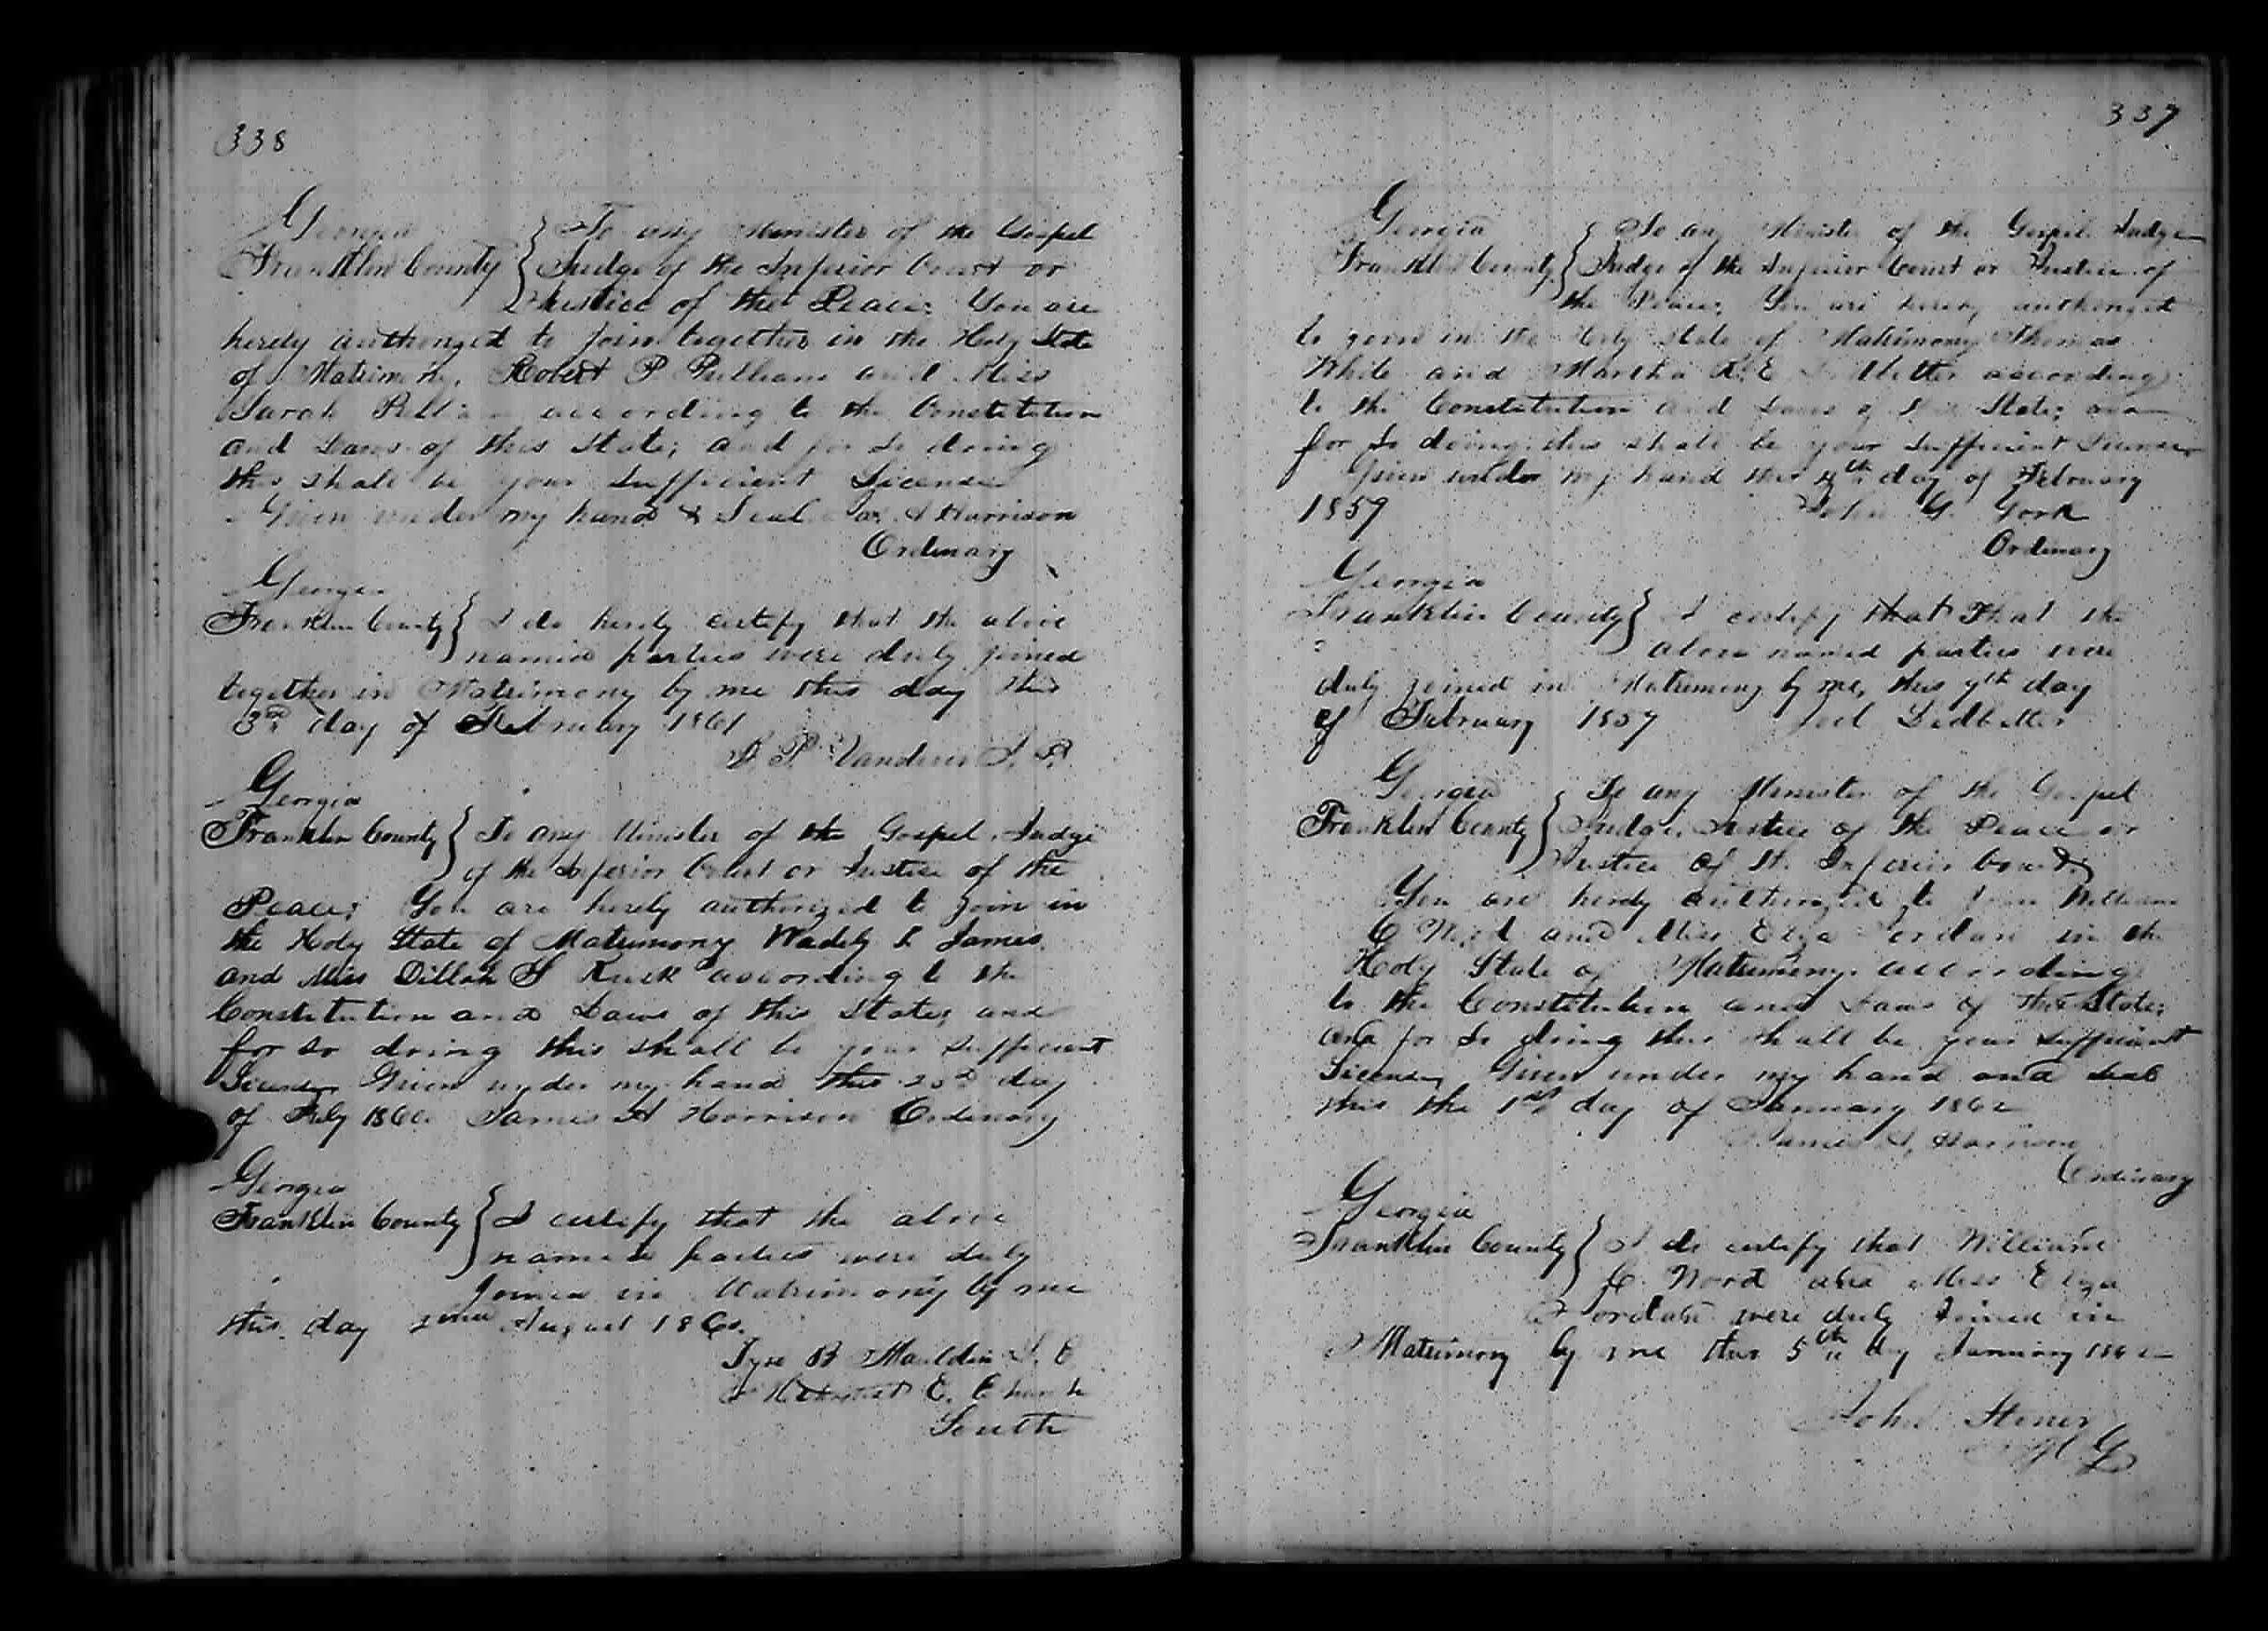 338
Georgia
Franklin County } To any Minister of the Gospel
Judge of the Inferior Court or
Justice of the Peace; You are
hereby authorized to join together in the Holy State
of Matrimony, Robert P Pulliam and Miss
Sarah according to the Constitution
and Laws of this State; and for So doing
this shall be your Sufficient License
Given under my hand & Seal A Harrison
Ordinary
Georgia
Franklin County } I do hereby certify that the above
named parties were duly joined
together in Matrimony by me this day this
3rd day of February 1861
P. J. P.
Georgia
Franklin County } To any Minister of the Gospel, Judge
of the Inferior Court or Justice of the
Peace; You are hereby authorized to join in
the Holy State of Matrimony James
and Miss according to the
Constitution and Laws of this State; and
for so doing this shall be your Sufficient
License Given under my hand this day
of July 1860. James A Harrison Ordinary
Georgia
Franklin County } I certify that the above
named parties were duly
Joined in Matrimony by me
this day August 1860.
Tyre B Mauldin
Methodist E. Church
South
337
Georgia
Franklin County } To any Minister of the Gospel Judge
Judge of the Inferior Court or Justice of
the Peace; You are hereby authorized
to join in the Holy State of Matrimony Thomas
White and Martha according
to the Constitution and Laws of this State; and
for So doing this shall be your Sufficient License
Given under my hand this day of February
1859 John G. York
Ordinary
Georgia
Franklin County } I certify that That the
above named parties were
duly joined in Matrimony by me, this day
of February 1859 Joel Ledbetter
Georgia
Franklin County } To any Minister of the Gospel
Judge, Justice of the Peace or
Justice of the Inferior Court
You are hereby authorized to Join William
C Word and Miss Eliza Jordan in the
Holy State of Matrimony. according
to the Constitution and Laws of this State;
and for So doing this shall be your Sufficient
License, Given under my hand and Seal
this the 1st day of January 1862
James A, Harrison
Ordinary
Georgia
Franklin County } I do certify that William
C. Word and Miss Eliza
Jordan were duly Joined in
Matrimony by me this 5th day January 1862
John
M G